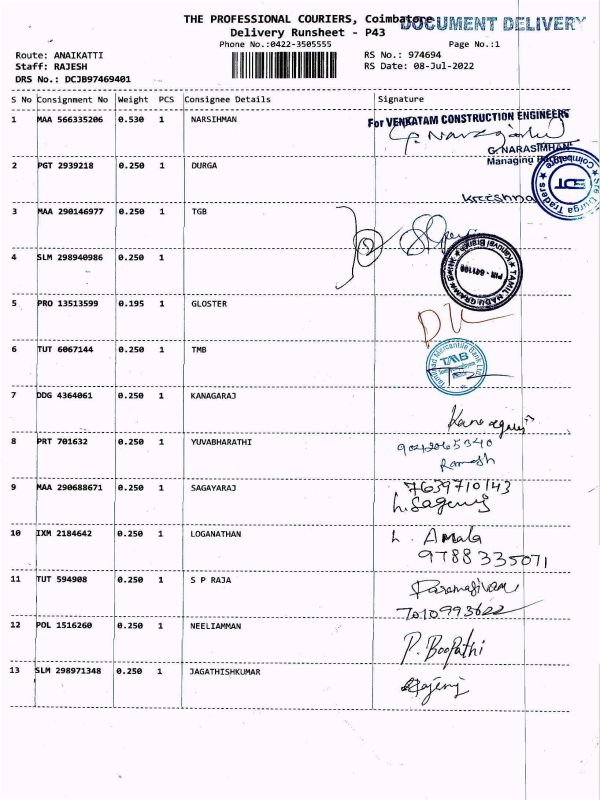 THE PROFESSIONAL COURIERS, Coimbatore
DOCUMENT DELIVERY
Delivery Runsheet - P43
Phone No.:0422-3505555
Page No.:1
Route: ANAIKATTI
RS No.: 974694
Staff: RAJESH
RS Date: 08-Jul-2022
DRS No.: DCJB97469401
S No Consignment No Weight PCS Consignee Details Signature
1 MAA 566335206 0.530 1 NARSIHMAN
For VENKATAM CONSTRUCTION ENGINEERS
G. NARASIMHAN
Managing
2 PGT 2939218 0.250 1 DURGA
Kreeshna
Sre Durga Traders
Coimbatore
SDT
3 MAA 290146977 0.250 1 TGB
4 SLM 298940986 0.250 1
5 PRO 13513599 0.195 1 GLOSTER
DK
6 TUT 6067144 0.250 1 TMB
Tamilnad Mercantile Bank Ltd
TMB
7 DDG 4364061 0.250 1 KANAGARAJ
8 PRT 701632 0.250 1 YUVABHARATHI
Ramesh
9 MAA 290688671 0.250 1 SAGAYARAJ
7639710143
10 IXM 2184642 0.250 1 LOGANATHAN
L. Amala
9788335071
11 TUT 594908 0.250 1 S P RAJA
Paramasivam
7010993622
12 POL 1516260 0.250 1 NEELIAMMAN
P. Boopathi
13 SLM 298971348 0.250 1 JAGATHISHKUMAR